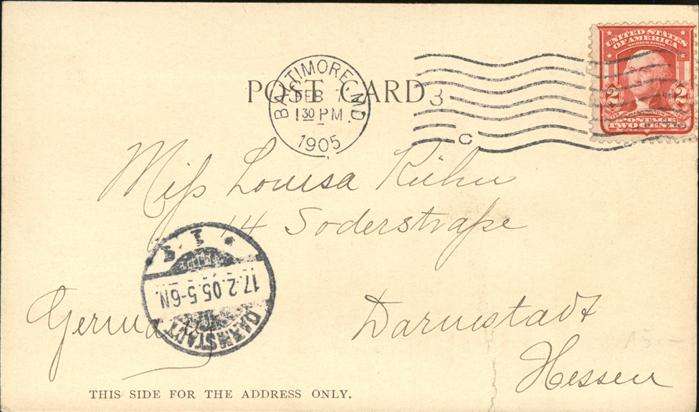 POST CARD
BALTIMORE, MD.
FEB 7
1 30 PM
1905
3
C
UNITED STATES
OF AMERICA
2 2
POSTAGE
TWO CENTS
Miſs Louisa Kühn
14 Soderstraſse
Darmstadt
Hessen
Germany
* 1 *
17.2.05.5-6N.
DARMSTADT
THIS SIDE FOR THE ADDRESS ONLY.